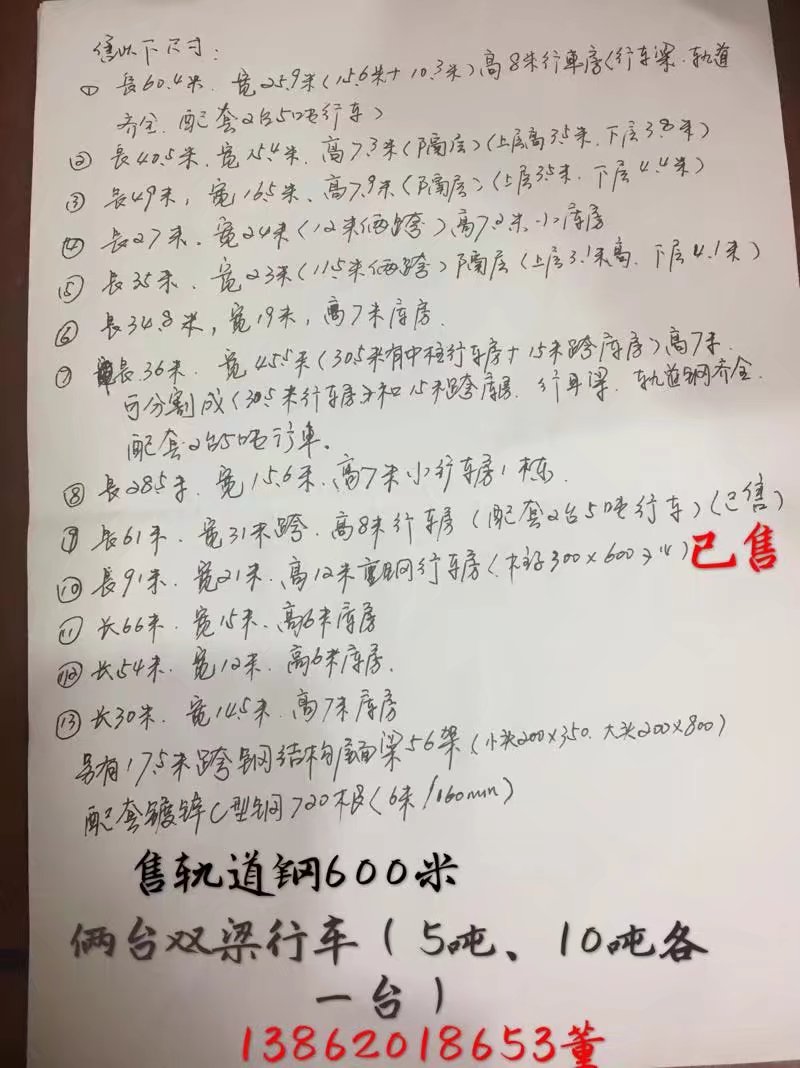 售以下尺寸：
① 長60.4米．宽25.9米（15.6米+10.3米）高8米行車房（行车梁．轨道
齐全．配套2台5吨行车）
② 長40.5米．宽15.4米．高7.3米（隔层）（上层高3.5米．下层3.8米）
③ 長49米，宽16.5米．高7.9米（隔层）（上层3.5米．下层4.4米）
④ 長27米．宽24米（12米俩跨）高7.2米小库房
⑤ 長35米．宽23米（11.5米俩跨）隔层（上层3.1米高．下层4.1米）
⑥ 長34.8米，宽19米，高7米库房．
⑦ 長36米．宽45.5米（30.5米有中柱行车房+15米跨库房）高7米．
可分割成（30.5米行车房和15米跨库房．行車梁．轨道钢齐全．
配套2台5吨行車。
⑧ 長28.5米．宽15.6米．高7米小行车房1栋．
⑨ 长61米．宽31米跨．高8米行车房（配套2台5吨行车）（已售）
⑩ 長91米．宽21米．高12米重钢行车房（柱子300×600） 已售
⑪ 长66米．宽15米．高6米库房
⑫ 长54米．宽12米．高6米库房．
⑬ 长30米．宽14.5米．高7米库房
另有17.5米跨钢结构屋面梁56架（小头200×350．大头200×800）
配套镀锌C型钢720根（6米/160mm）
售轨道钢600米
俩台双梁行车（5吨、10吨各
一台）
13862018653董